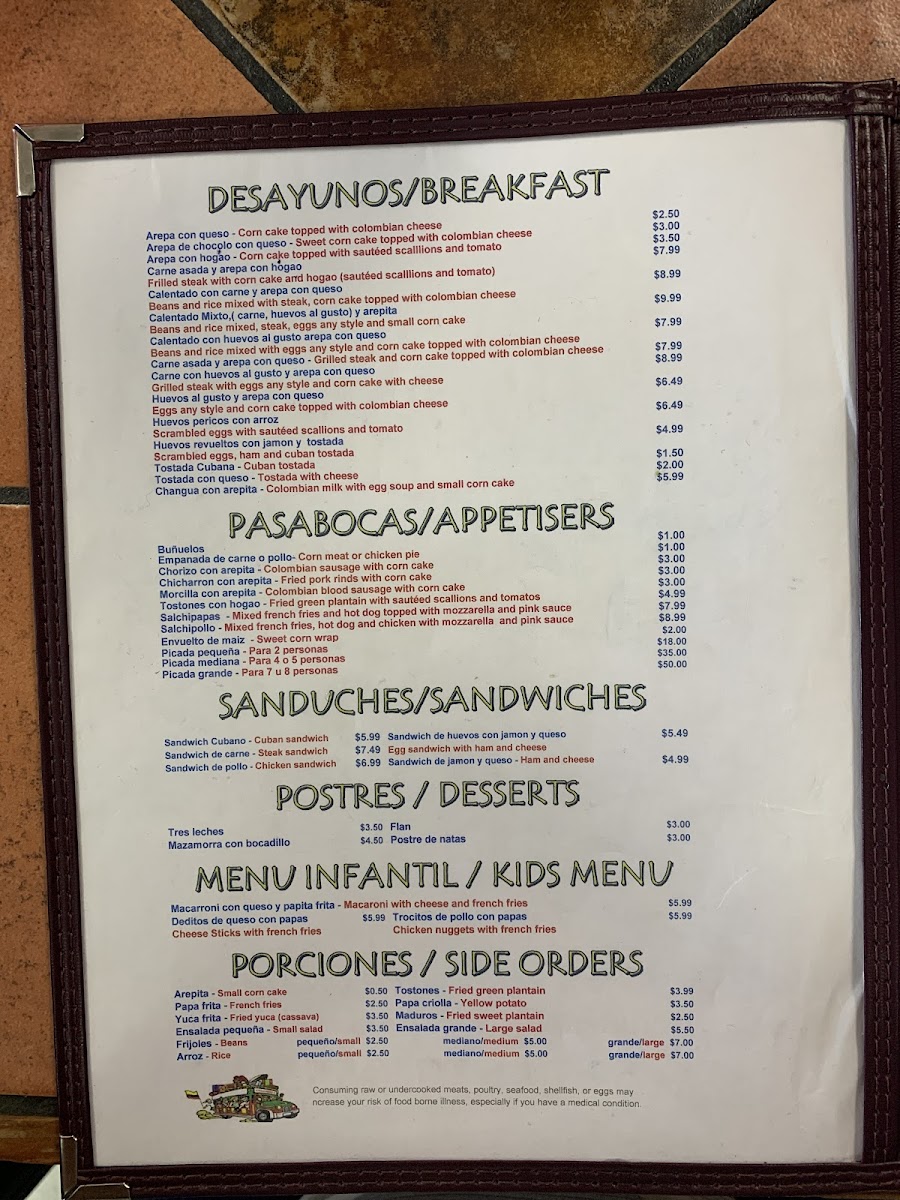 DESAYUNOS/BREAKFAST
Arepa con queso - Corn cake topped with colombian cheese $2.50
Arepa de chocolo con queso - Sweet corn cake topped with colombian cheese $3.00
Arepa con hogao - Corn cake topped with sautéed scalllions and tomato $3.50
Carne asada y arepa con hogao $7.99
Frilled steak with corn cake and hogao (sautéed scalllions and tomato)
Calentado con carne y arepa con queso $8.99
Beans and rice mixed with steak, corn cake topped with colombian cheese
Calentado Mixto,( carne, huevos al gusto) y arepita $9.99
Beans and rice mixed, steak, eggs any style and small corn cake
Calentado con huevos al gusto arepa con queso $7.99
Beans and rice mixed with eggs any style and corn cake topped with colombian cheese
Carne asada y arepa con queso - Grilled steak and corn cake topped with colombian cheese $7.99
Carne con huevos al gusto y arepa con queso $8.99
Grilled steak with eggs any style and corn cake with cheese
Huevos al gusto y arepa con queso $6.49
Eggs any style and corn cake topped with colombian cheese
Huevos pericos con arroz $6.49
Scrambled eggs with sautéed scallions and tomato
Huevos revueltos con jamon y tostada $4.99
Scrambled eggs, ham and cuban tostada
Tostada Cubana - Cuban tostada $1.50
Tostada con queso - Tostada with cheese $2.00
Changua con arepita - Colombian milk with egg soup and small corn cake $5.99
PASABOCAS/APPETISERS
Buñuelos $1.00
Empanada de carne o pollo- Corn meat or chicken pie $1.00
Chorizo con arepita - Colombian sausage with corn cake $3.00
Chicharron con arepita - Fried pork rinds with corn cake $3.00
Morcilla con arepita - Colombian blood sausage with corn cake $3.00
Tostones con hogao - Fried green plantain with sautéed scallions and tomatos $4.99
Salchipapas - Mixed french fries and hot dog topped with mozzarella and pink sauce $7.99
Salchipollo - Mixed french fries, hot dog and chicken with mozzarella and pink sauce $8.99
Envuelto de maiz - Sweet corn wrap $2.00
Picada pequeña - Para 2 personas $18.00
Picada mediana - Para 4 o 5 personas $35.00
Picada grande - Para 7 u 8 personas $50.00
SANDUCHES/SANDWICHES
Sandwich Cubano - Cuban sandwich $5.99 Sandwich de huevos con jamon y queso $5.49
Sandwich de carne - Steak sandwich $7.49 Egg sandwich with ham and cheese
Sandwich de pollo - Chicken sandwich $6.99 Sandwich de jamon y queso - Ham and cheese $4.99
POSTRES / DESSERTS
Tres leches $3.50 Flan $3.00
Mazamorra con bocadillo $4.50 Postre de natas $3.00
MENU INFANTIL / KIDS MENU
Macarroni con queso y papita frita - Macaroni with cheese and french fries $5.99
Deditos de queso con papas $5.99 Trocitos de pollo con papas $5.99
Cheese Sticks with french fries Chicken nuggets with french fries
PORCIONES / SIDE ORDERS
Arepita - Small corn cake $0.50 Tostones - Fried green plantain $3.99
Papa frita - French fries $2.50 Papa criolla - Yellow potato $3.50
Yuca frita - Fried yuca (cassava) $3.50 Maduros - Fried sweet plantain $2.50
Ensalada pequeña - Small salad $3.50 Ensalada grande - Large salad $5.50
Frijoles - Beans pequeño/small $2.50 mediano/medium $5.00 grande/large $7.00
Arroz - Rice pequeño/small $2.50 mediano/medium $5.00 grande/large $7.00
Consuming raw or undercooked meats, poultry, seafood, shellfish, or eggs may
ncrease your risk of food borne illness, especially if you have a medical condition.